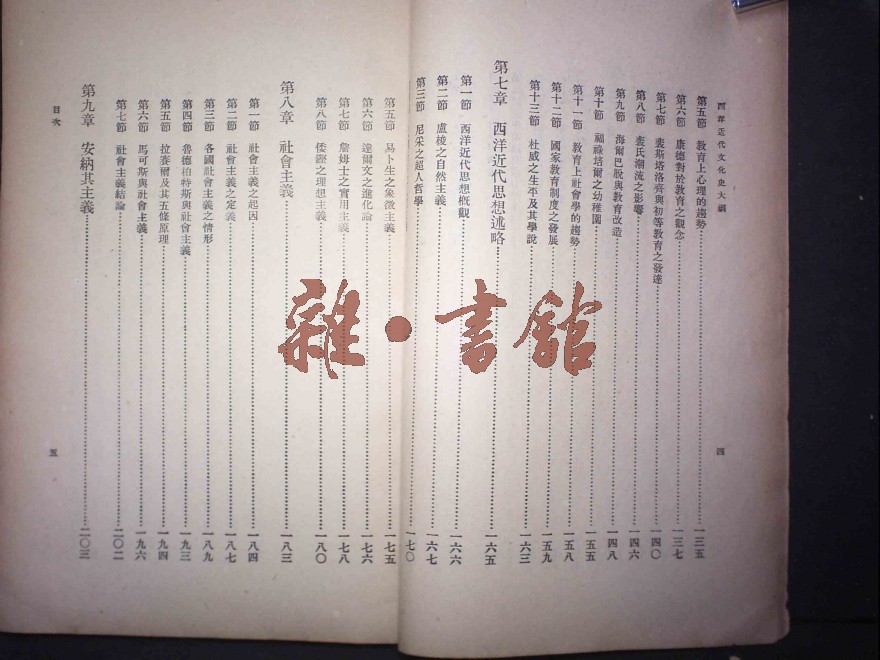 西洋近代文化史大綱
四
第五節　教育上心理的趨勢…一三五
第六節　康德對於教育之觀念…一三七
第七節　裴斯塔洛齊與初等教育之發達…一四〇
第八節　裴氏潮流之影響…一四六
第九節　海爾巴脫與教育改造…一四八
第十節　福祿培爾之幼稚園…一五五
第十一節　教育上社會學的趨勢…一五八
第十二節　國家教育制度之發展…一五九
第十三節　杜威之生平及其學說…一六三
第七章　西洋近代思想述略…一六五
第一節　西洋近代思想槪觀…一六六
第二節　盧梭之自然主義…一六七
第三節　尼采之超人哲學…一七〇
第五節　易卜生之象徵主義…一七五
第六節　達爾文之進化論…一七六
第七節　詹姆士之實用主義…一七八
第八節　倭鏗之理想主義…一八〇
第八章　社會主義…一八三
第一節　社會主義之起因…一八四
第二節　社會主義之定義…一八七
第三節　各國社會主義之情形…一八九
第四節　魯德柏特斯與社會主義…一九三
第五節　拉賽爾及其五條原理…一九四
第六節　馬可斯與社會主義…一九六
第七節　社會主義結論…二〇二
第九章　安納其主義…二〇三
目次
五
雜·書館